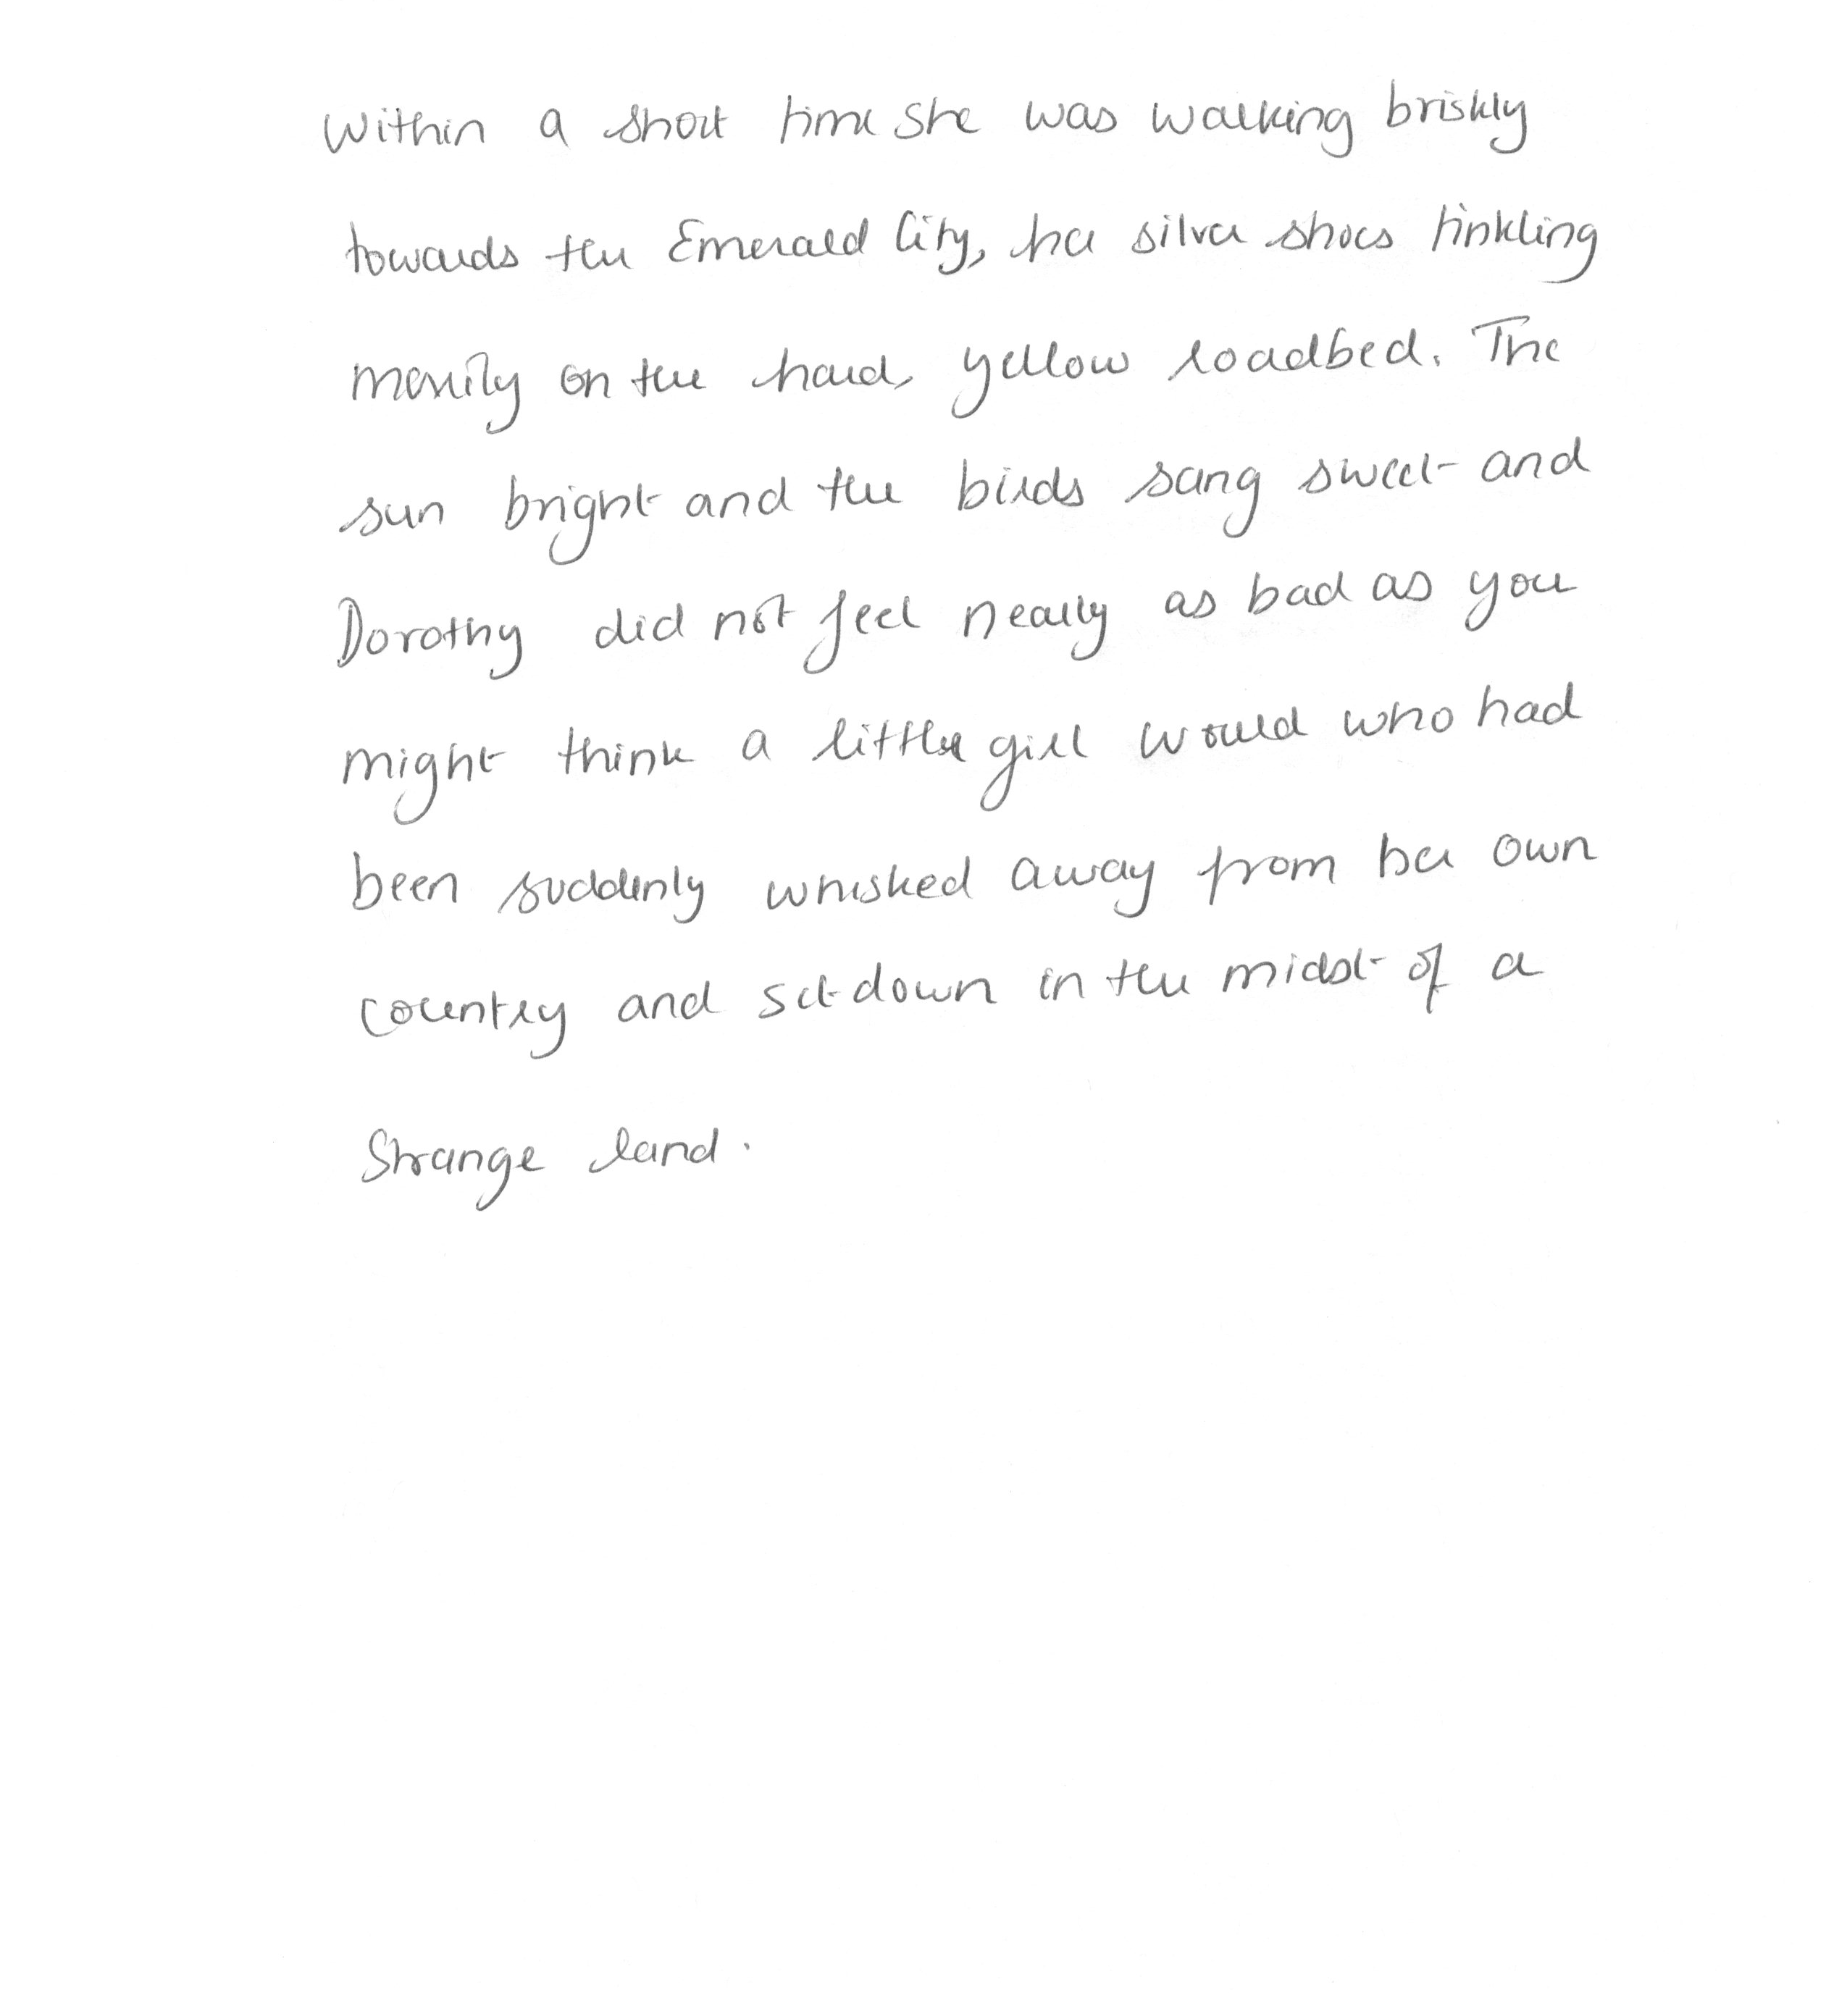 Within a short time she was walking briskly
towards the Emerald City, her silver shoes tinkling
merrily on the hard, yellow roadbed. The
sun bright and the birds sang sweet and
Dorothy did not feel nearly as bad as you
might think a little girl would who had
been suddenly whisked away from her own
country and set down in the midst of a
strange land.